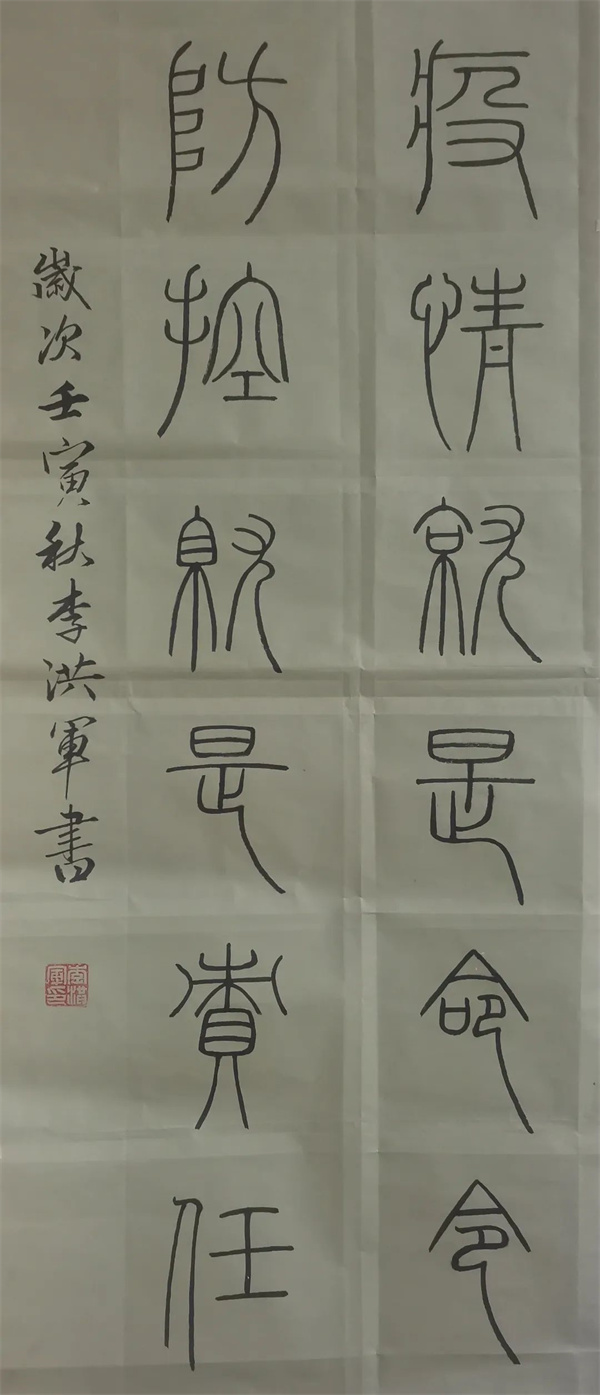 疫情就是命令
防控就是責任
歲次壬寅秋李洪軍書
李洪軍印